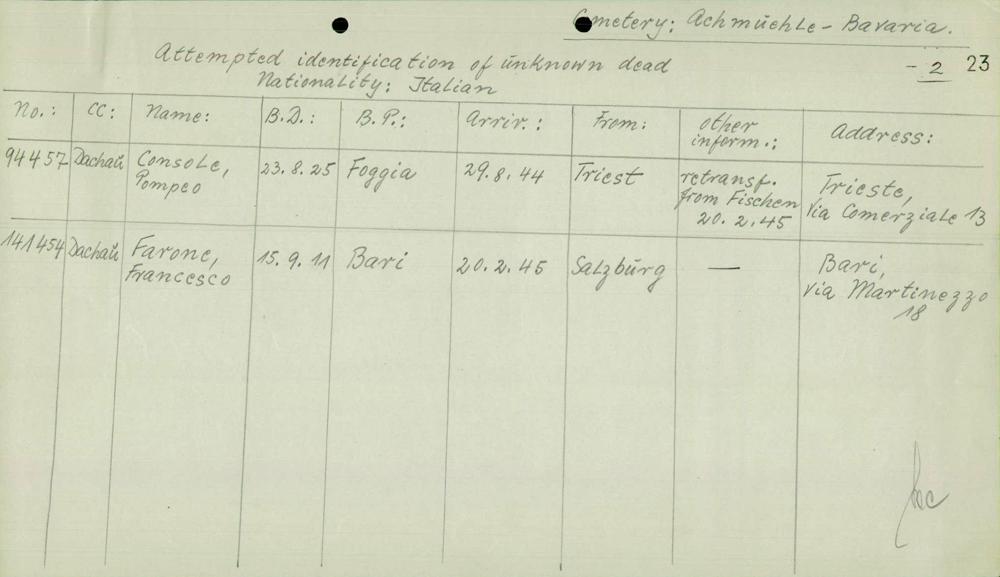 Cemetery: Achmuehle - Bavaria.
Attempted identification of unknown dead
- 2 23
Nationality: Italian
No.: CC: Name: B.D.: B.P.: Arriv.: From: other inform.: Address:
94457 Dachau Console, Pompeo 23.8.25 Foggia 29.8.44 Triest retransf. from Fischen 20.2.45 Trieste, Via Comerziale 13
141454 Dachau Farone, Francesco 15.9.11 Bari 20.2.45 Salzburg — Bari, Via Martinezzo 18